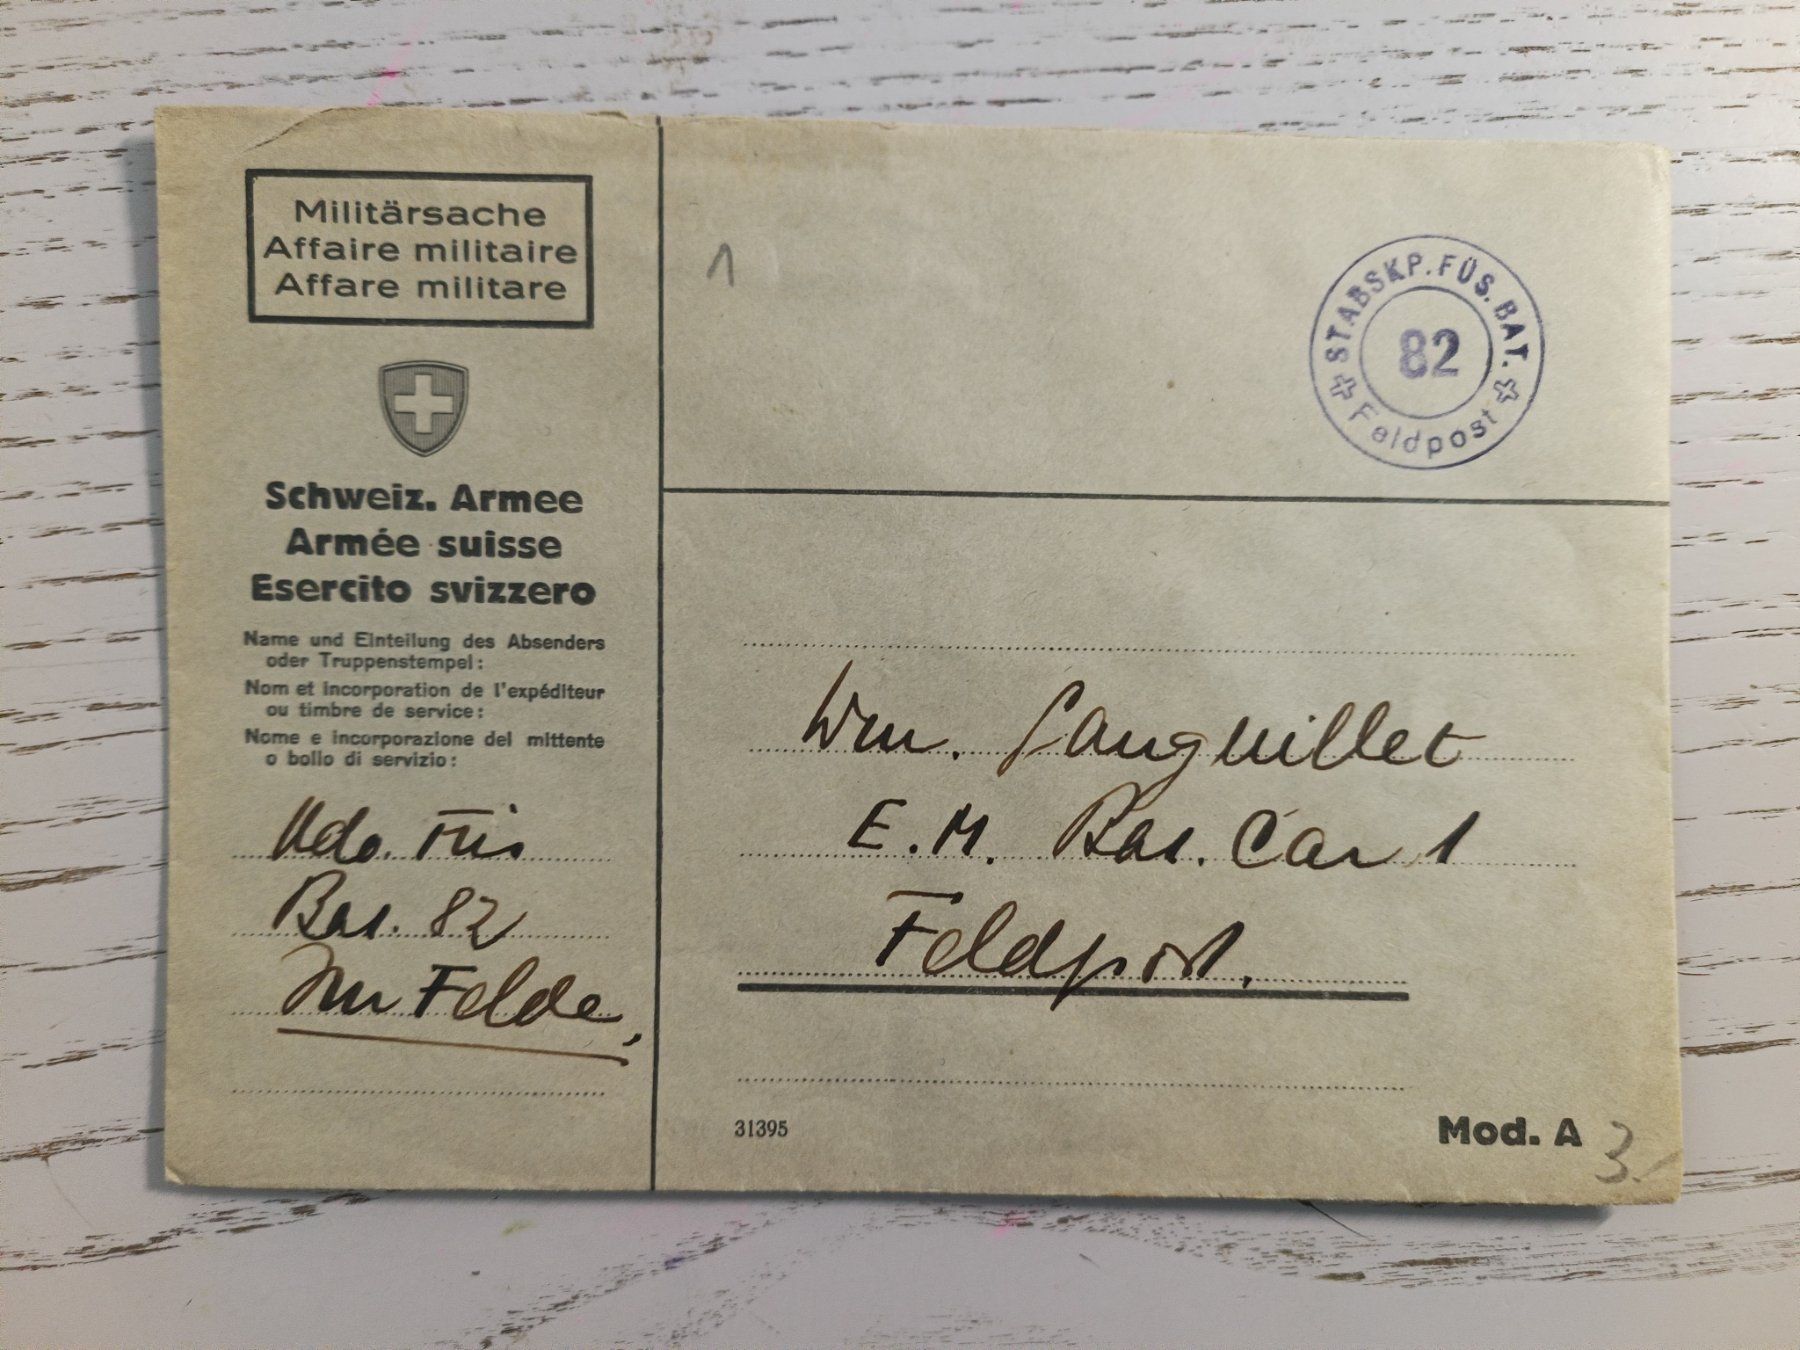 Militärsache
Affaire militaire
Affare militare
Schweiz. Armee
Armée suisse
Esercito svizzero
Name und Einteilung des Absenders
oder Truppenstempel:
Nom et incorporation de l'expéditeur
ou timbre de service:
Nome e incorporazione del mittente
o bollo di servizio:
Kdo. Füs
Bat. 82
Im Felde,
1
STABSKP. FÜS. BAT.
82
Feldpost
Wm. Languillet
E. M. Bat. Car 1
Feldpost.
31395
Mod. A
3.-